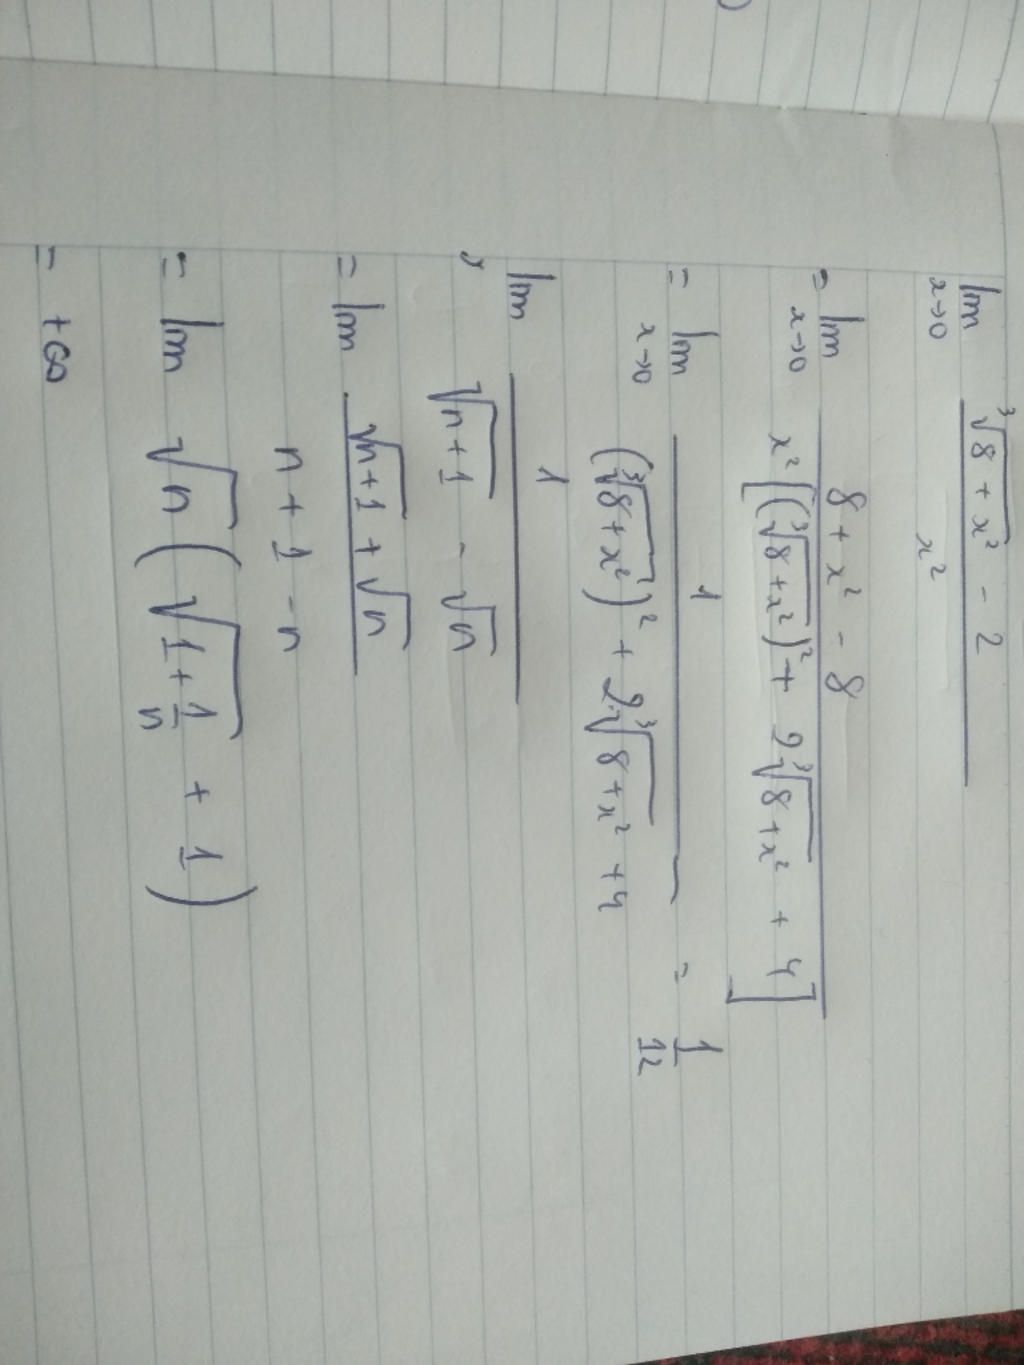 lim x→0 (∛(8 + x²) - 2) / x²
= lim x→0 (8 + x² - 8) / (x² [(∛(8 + x²))² + 2∛(8 + x²) + 4])
= lim x→0 1 / ((∛(8 + x²))² + 2∛(8 + x²) + 4) = 1/12
lim 1 / (√(n + 1) - √n)
= lim (√(n + 1) + √n) / (n + 1 - n)
= lim √n (√(1 + 1/n) + 1)
= +∞